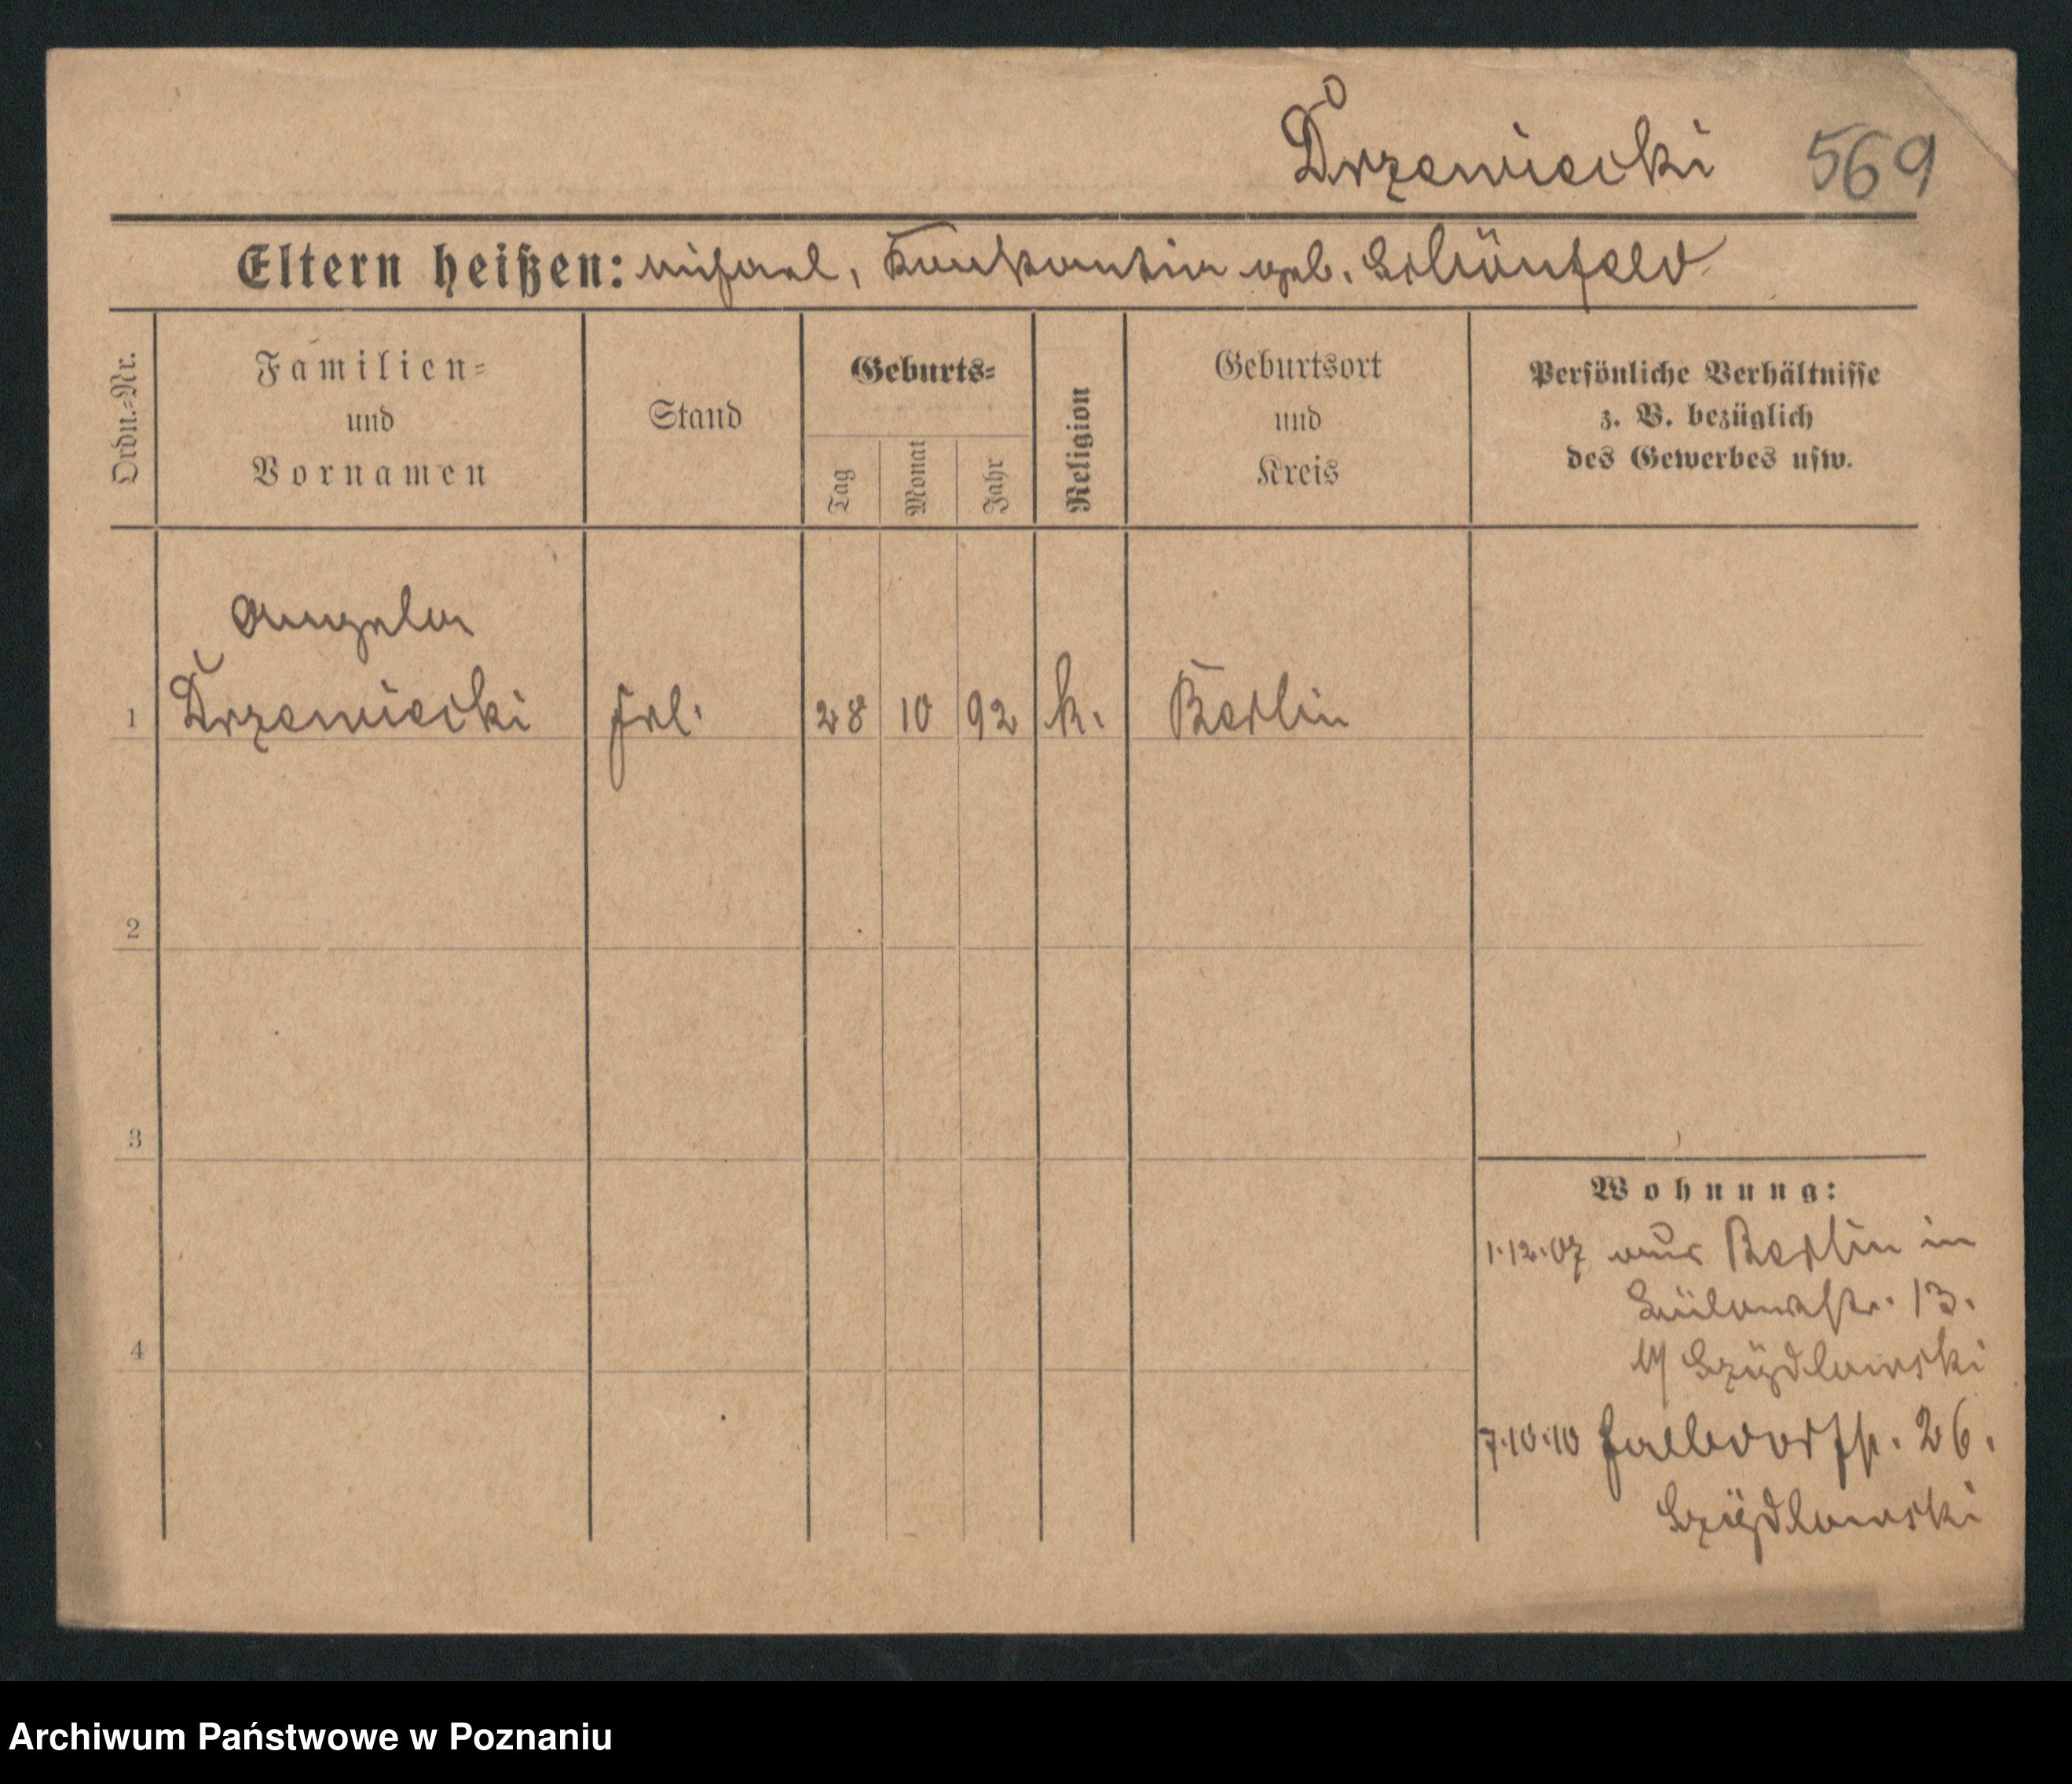 Drzewiecki 569
Eltern heißen: Michael, Konstantia geb. Schönfeld
Ordn.-Nr.
Familien-
und
Vornamen
Stand
Geburts-
Tag
Monat
Jahr
Religion
Geburtsort
und
Kreis
Persönliche Verhältnisse
z. B. bezüglich
des Gewerbes usw.
Angela
1 Drzewiecki Frl. 28 10 92 k. Berlin
2
3
4
Wohnung:
1.12.07 aus Berlin in
Bülowstr. 13.
Szydlowski
7.10.10 26.
Szydlowski
Archiwum Państwowe w Poznaniu